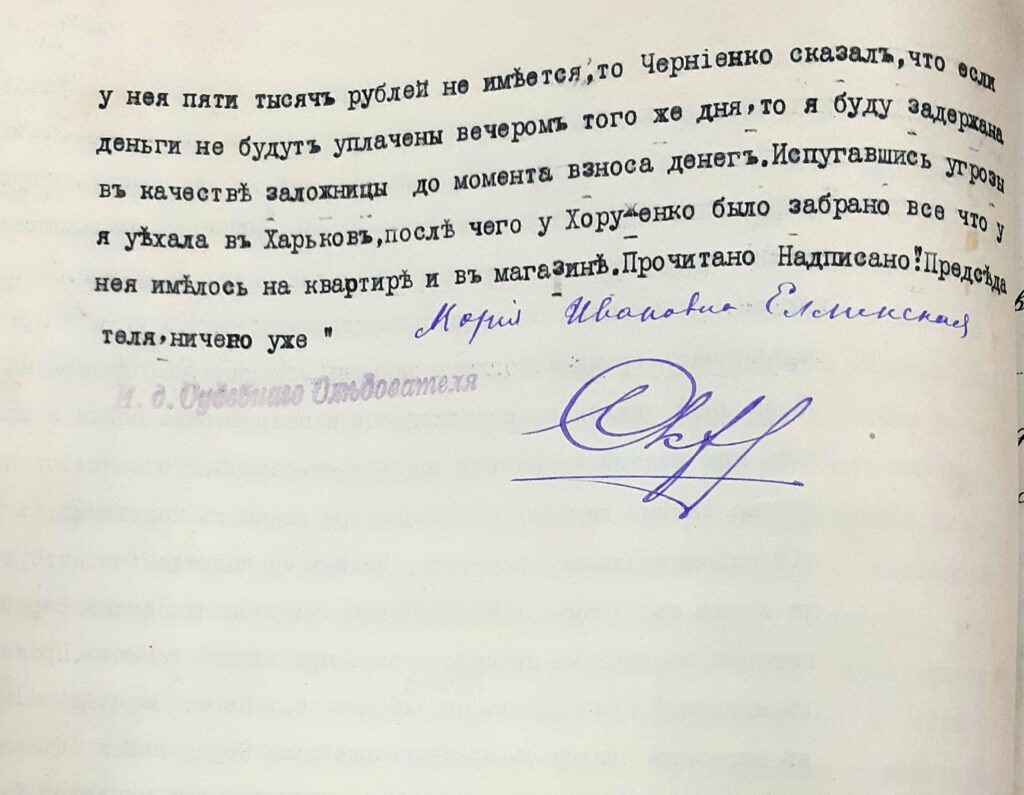 у нея пяти тысячъ рублей не имѣется,то Чернiенко сказалъ,что если
деньги не будутъ уплачены вечеромъ того же дня,то я буду задержана
въ качествѣ заложницы до момента взноса денегъ.Испугавшись угрозы
я уѣхала въ Харьковъ,послѣ чего у Хоруженко было забрано все что у
нея имѣлось на квартирѣ и въ магазинѣ.Прочитано Надписано:"Предсѣда
теля,ничего уже "
Марiя Ивановна
И. д. Судебнаго Слѣдователя